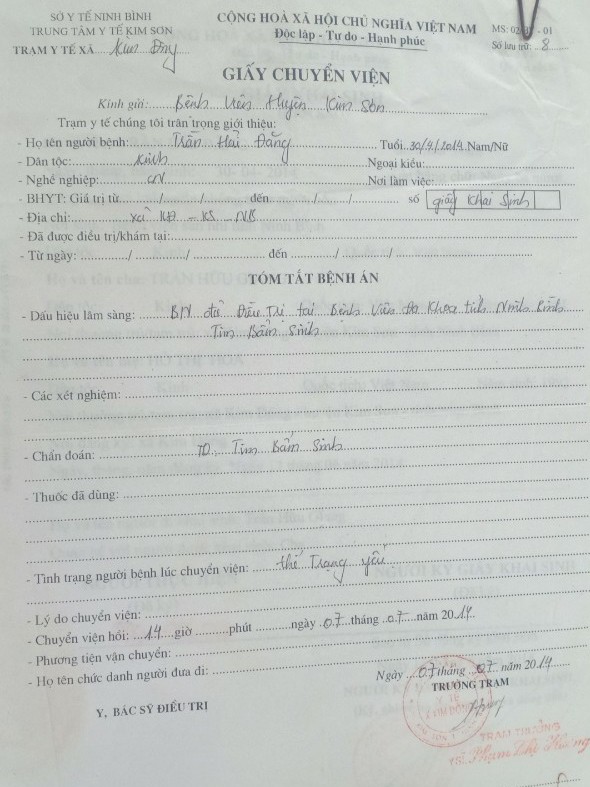 SỞ Y TẾ NINH BÌNH
TRUNG TÂM Y TẾ KIM SƠN
TRẠM Y TẾ XÃ Kim Đông
CỘNG HOÀ XÃ HỘI CHỦ NGHĨA VIỆT NAM
Độc lập - Tự do - Hạnh phúc
MS: - 01
Số lưu trữ: 8
GIẤY CHUYỂN VIỆN
Kính gửi: Bệnh viện Huyện Kim Sơn
Trạm y tế chúng tôi trân trọng giới thiệu:
- Họ tên người bệnh: Trần Hải Đăng Tuổi 30/4/2014 Nam/Nữ
- Dân tộc: Kinh Ngoại kiều:
- Nghề nghiệp: Nơi làm việc:
- BHYT: Giá trị từ / / đến / / số giấy Khai Sinh
- Địa chỉ: xã KĐ - KS - NB
- Đã được điều trị/khám tại:
- Từ ngày: / / đến / /
TÓM TẮT BỆNH ÁN
- Dấu hiệu lâm sàng: BN đã Điều Trị tại Bệnh viện đa Khoa tỉnh Ninh Bình
Tim Bẩm Sinh
- Các xét nghiệm:
- Chẩn đoán: TD, Tim Bẩm Sinh
- Thuốc đã dùng:
- Tình trạng người bệnh lúc chuyển viện: thể Trạng yếu
- Lý do chuyển viện:
- Chuyển viện hồi: 14 giờ phút ngày 07 tháng 07 năm 2014
- Phương tiện vận chuyển:
- Họ tên chức danh người đưa đi:
Ngày 07 tháng 07 năm 2014
Y, BÁC SỸ ĐIỀU TRỊ
TRƯỞNG TRẠM
TRẠM TRƯỞNG